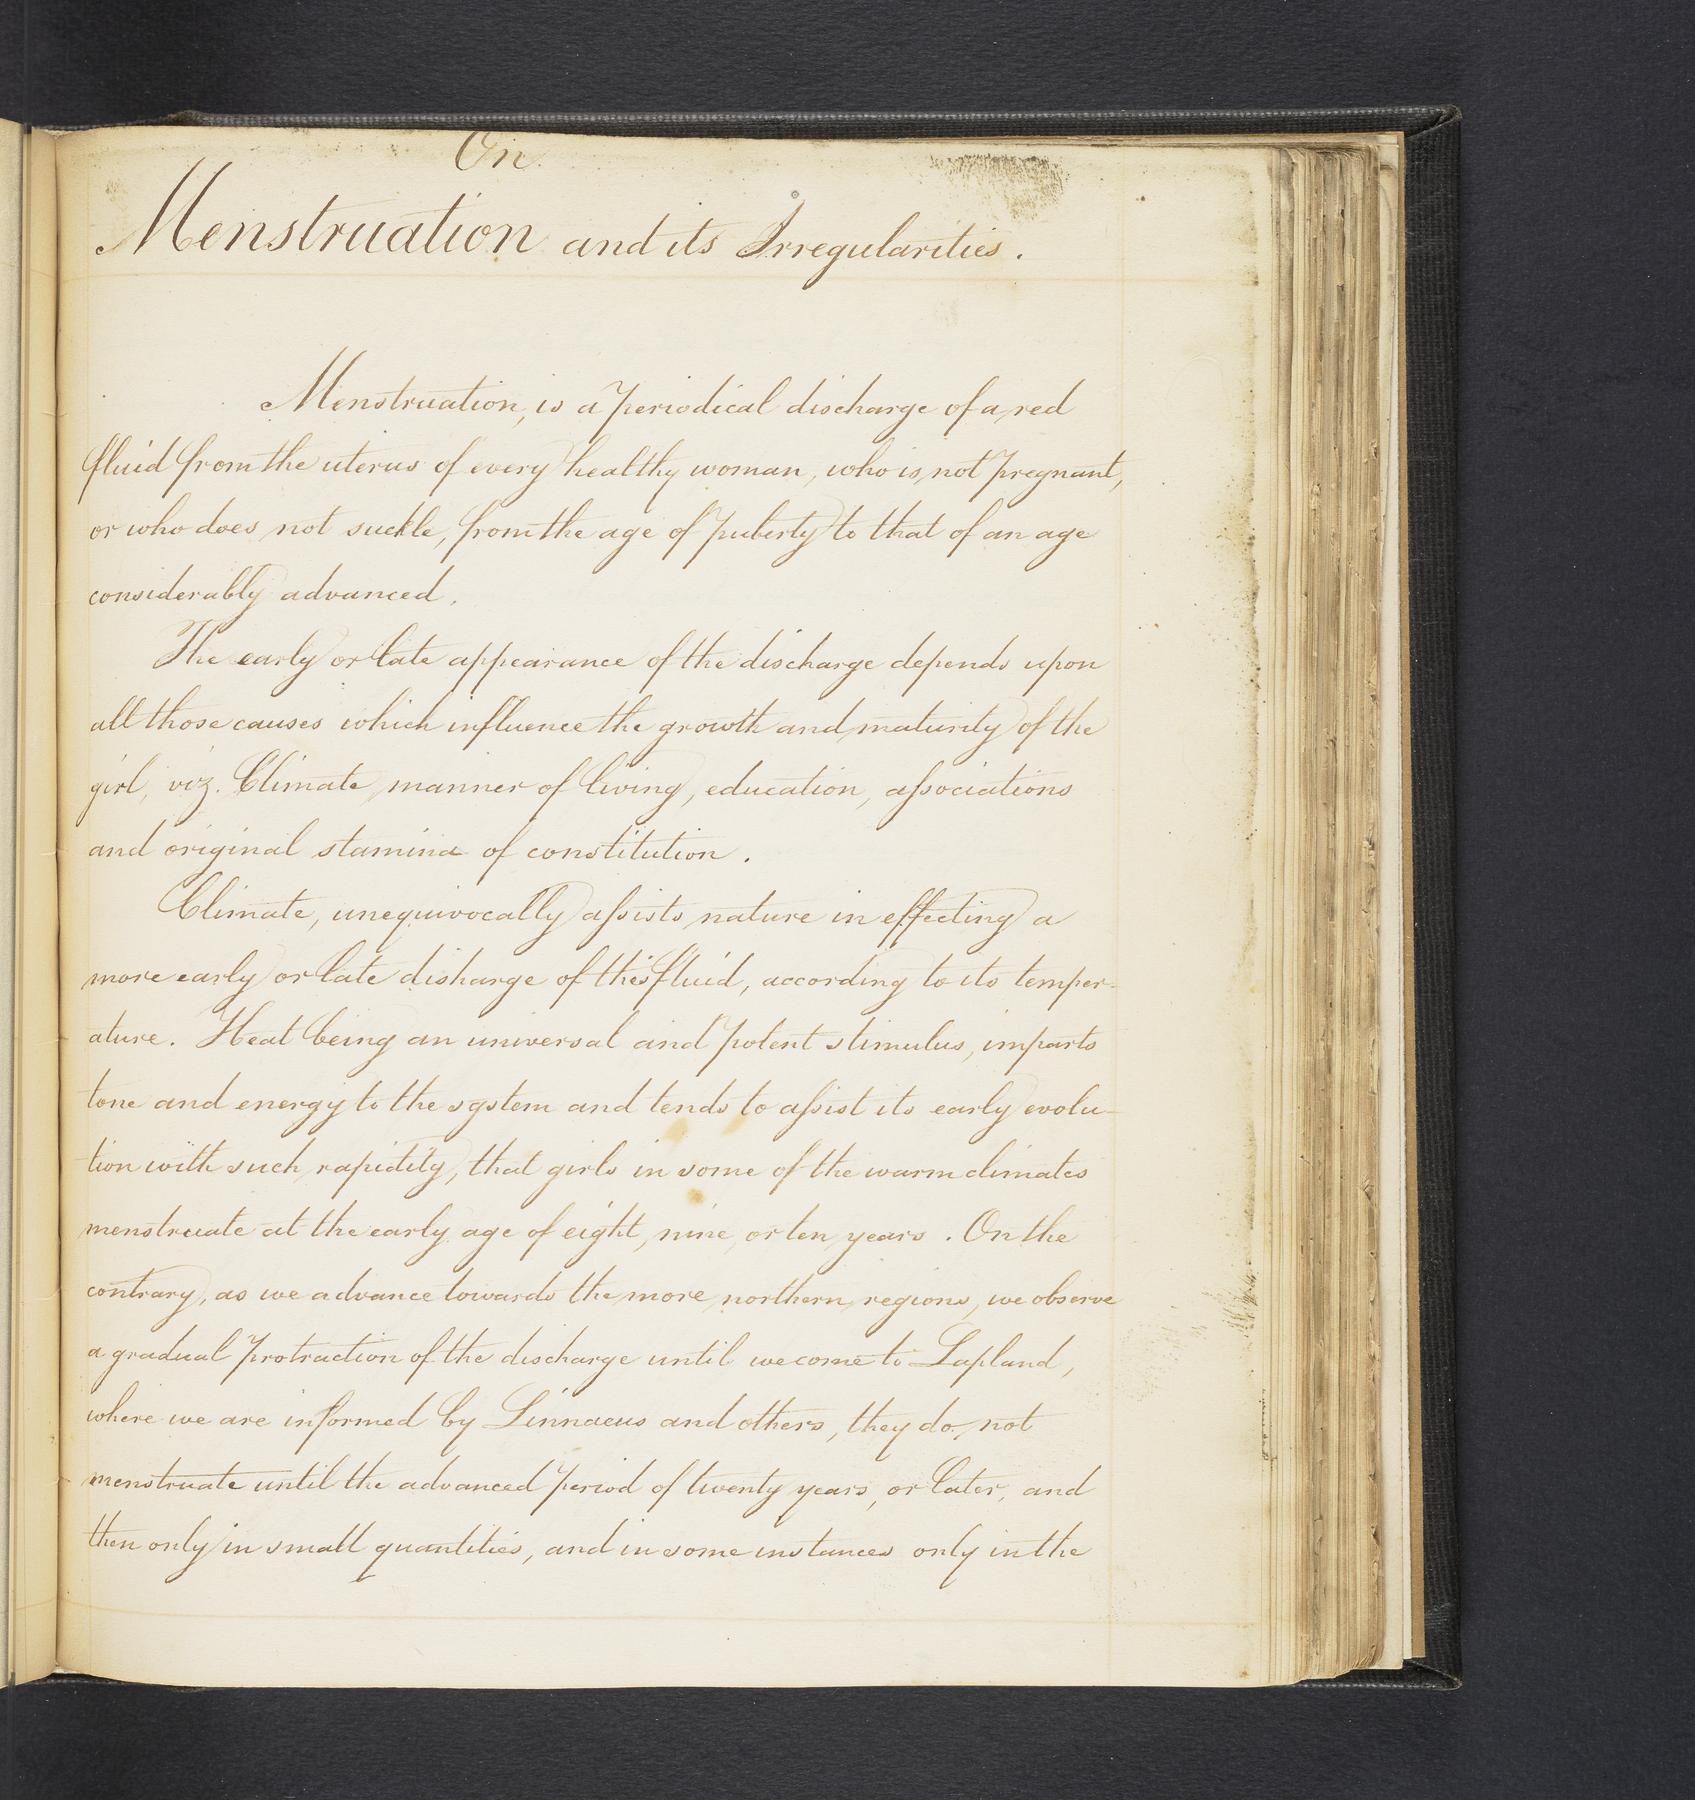 On
Menstruation and its Irregularities.
Menstruation, is a periodical discharge of a red
fluid from the uterus of every healthy woman, who is, not pregnant,
or who does not suckle, from the age of puberty to that of an age
considerably advanced.
The early or late appearance of the discharge depends upon
all those causes which influence the growth and maturity of the
girl, viz. Climate, manner of living, education, aſsociations
and original stamina of constitution.
Climate, unequivocally aſsists nature in effecting a
more early or late disharge of this fluid, according to its temper-
ature. Heat being an universal and potent stimulus, imparts
tone and energy to the system and tends to aſsist its early evolu-
tion with such rapidity, that girls in some of the warm climates
menstruate at the early age of eight, nine, or ten years. On the
contrary, as we advance towards the more northern regions, we observe
a gradual protraction of the discharge until we come to Lapland,
where we are informed by Linnaeus and others, they do, not
menstruate until the advanced period of twenty years, or later, and
then only in small quantities, and in some instances only in the